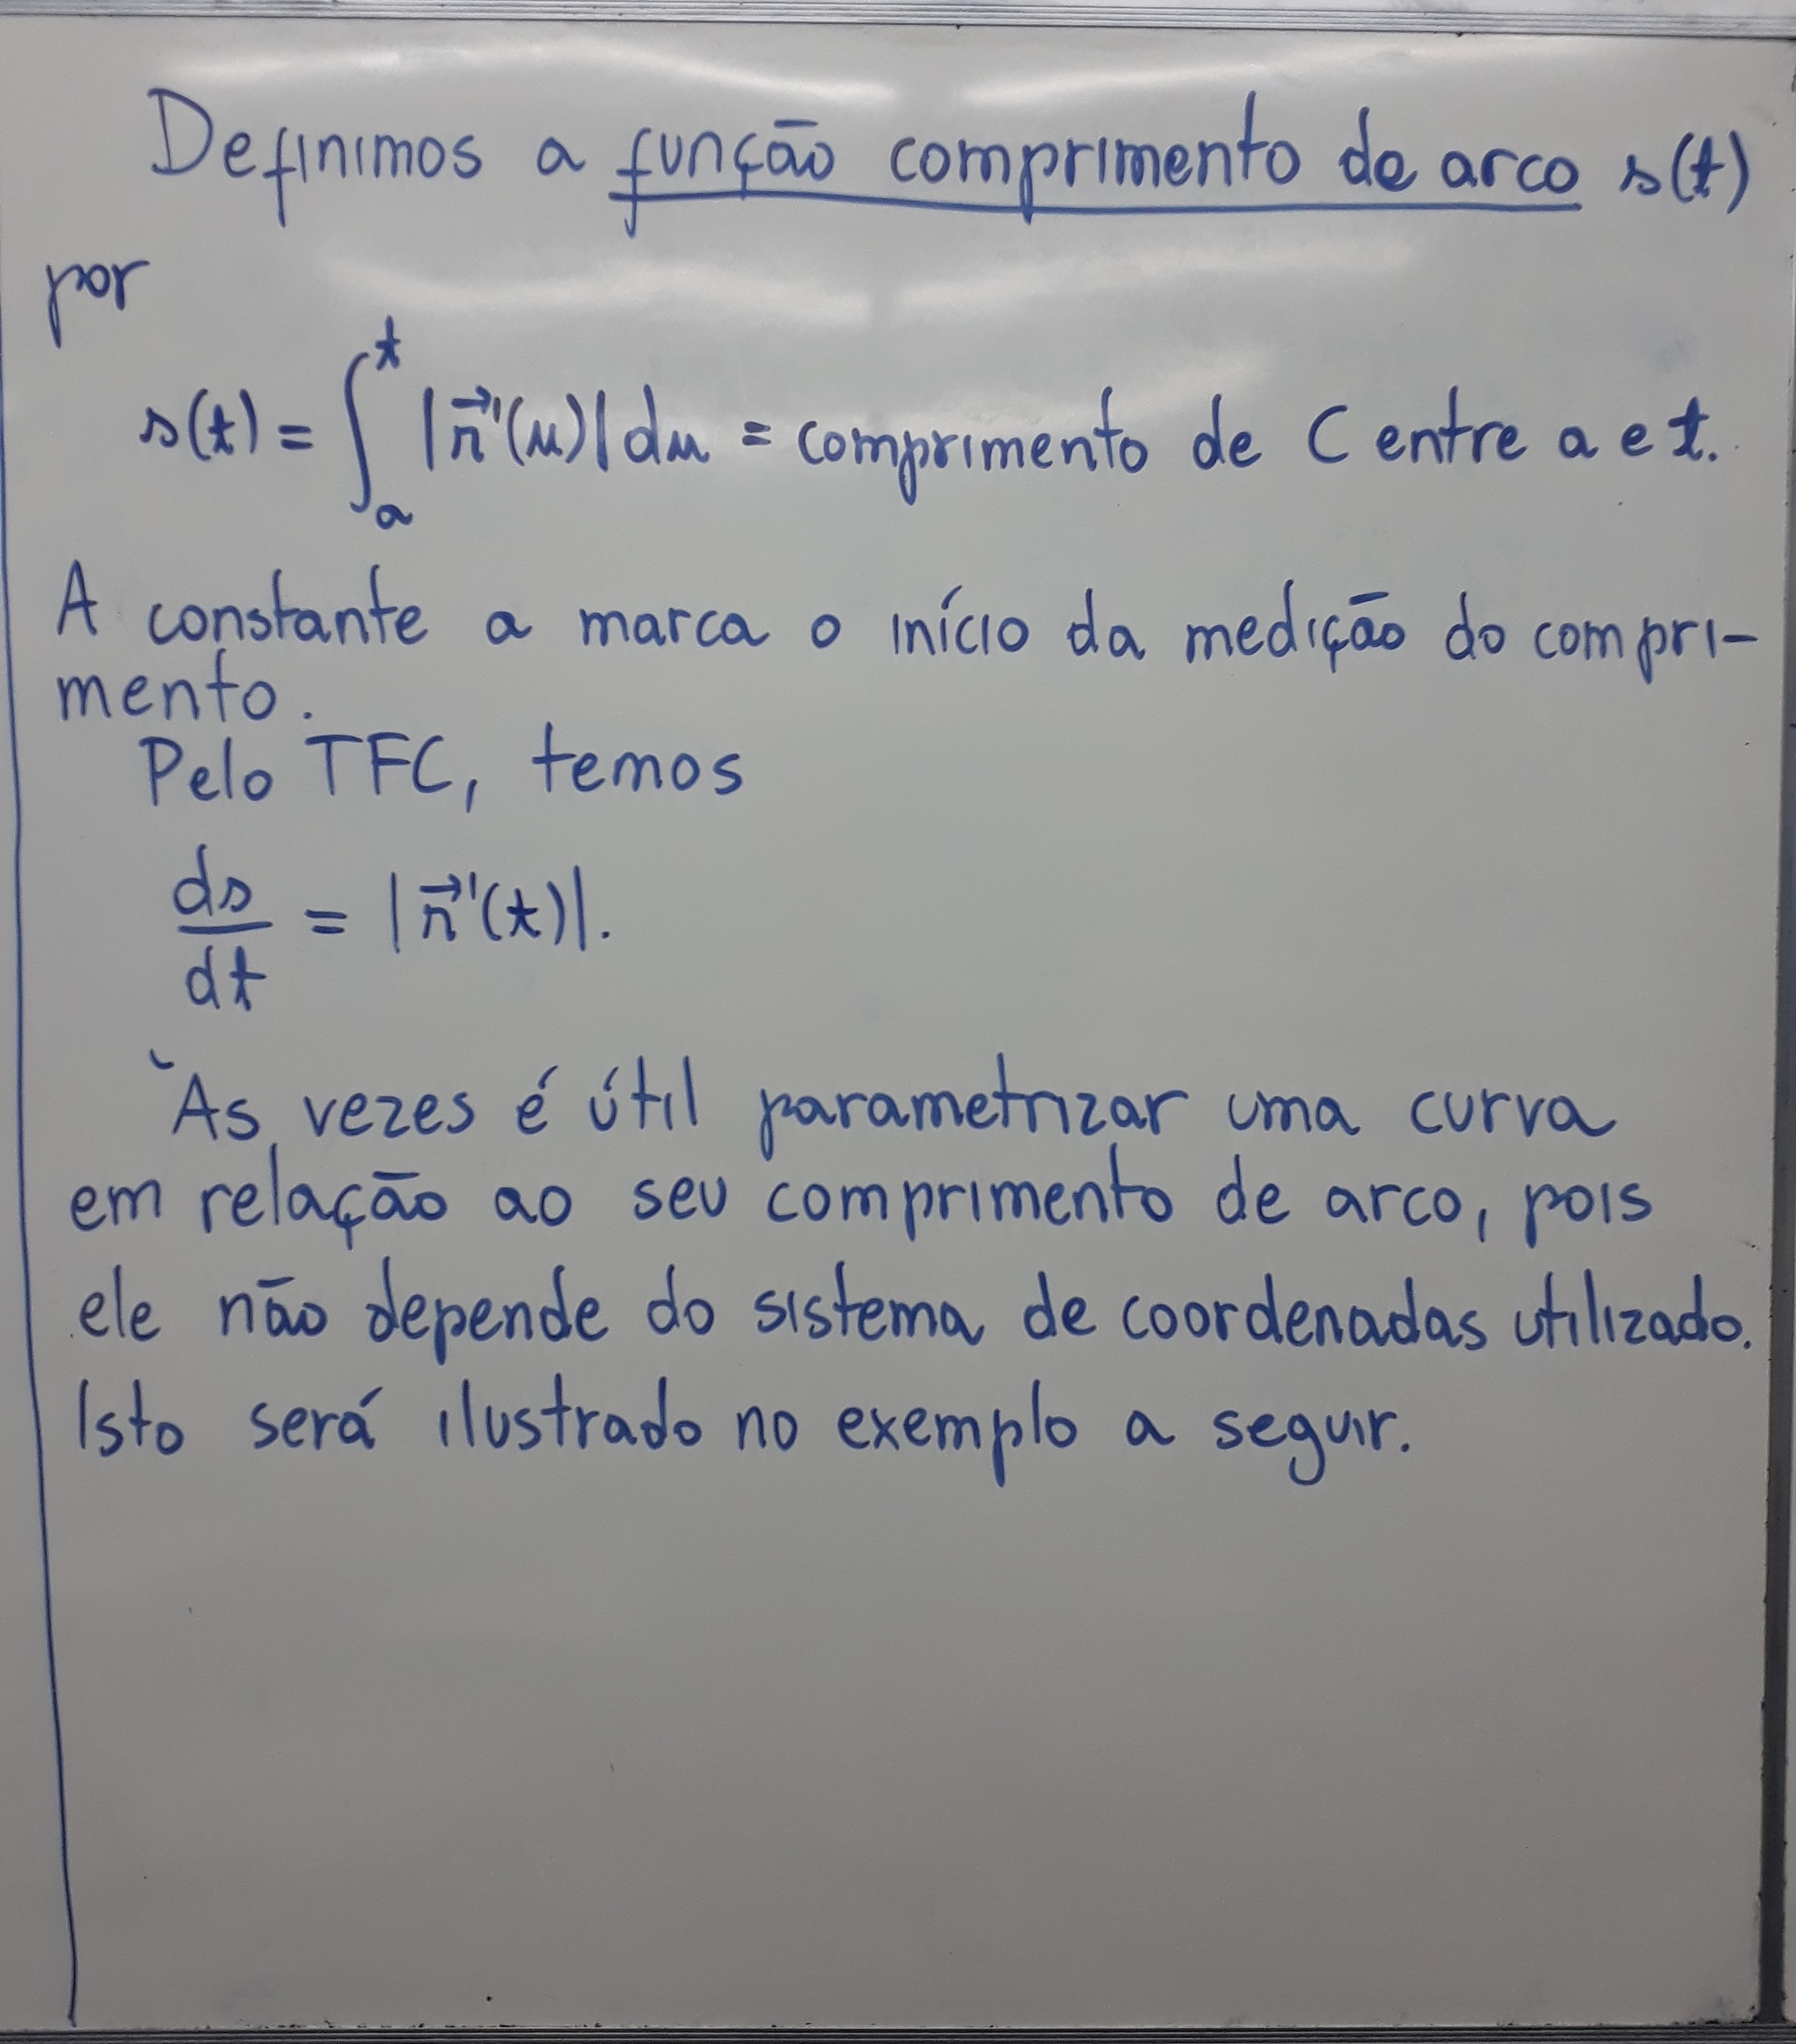 Definimos a função comprimento de arco s(t)
por
s(t) = ∫ₐᵗ |r⃗'(u)| du = comprimento de C entre a e t.
A constante a marca o início da medição do compri-
mento.
Pelo TFC, temos
ds/dt = |r⃗'(t)|.
Às vezes é útil parametrizar uma curva
em relação ao seu comprimento de arco, pois
ele não depende do sistema de coordenadas utilizado.
Isto será ilustrado no exemplo a seguir.